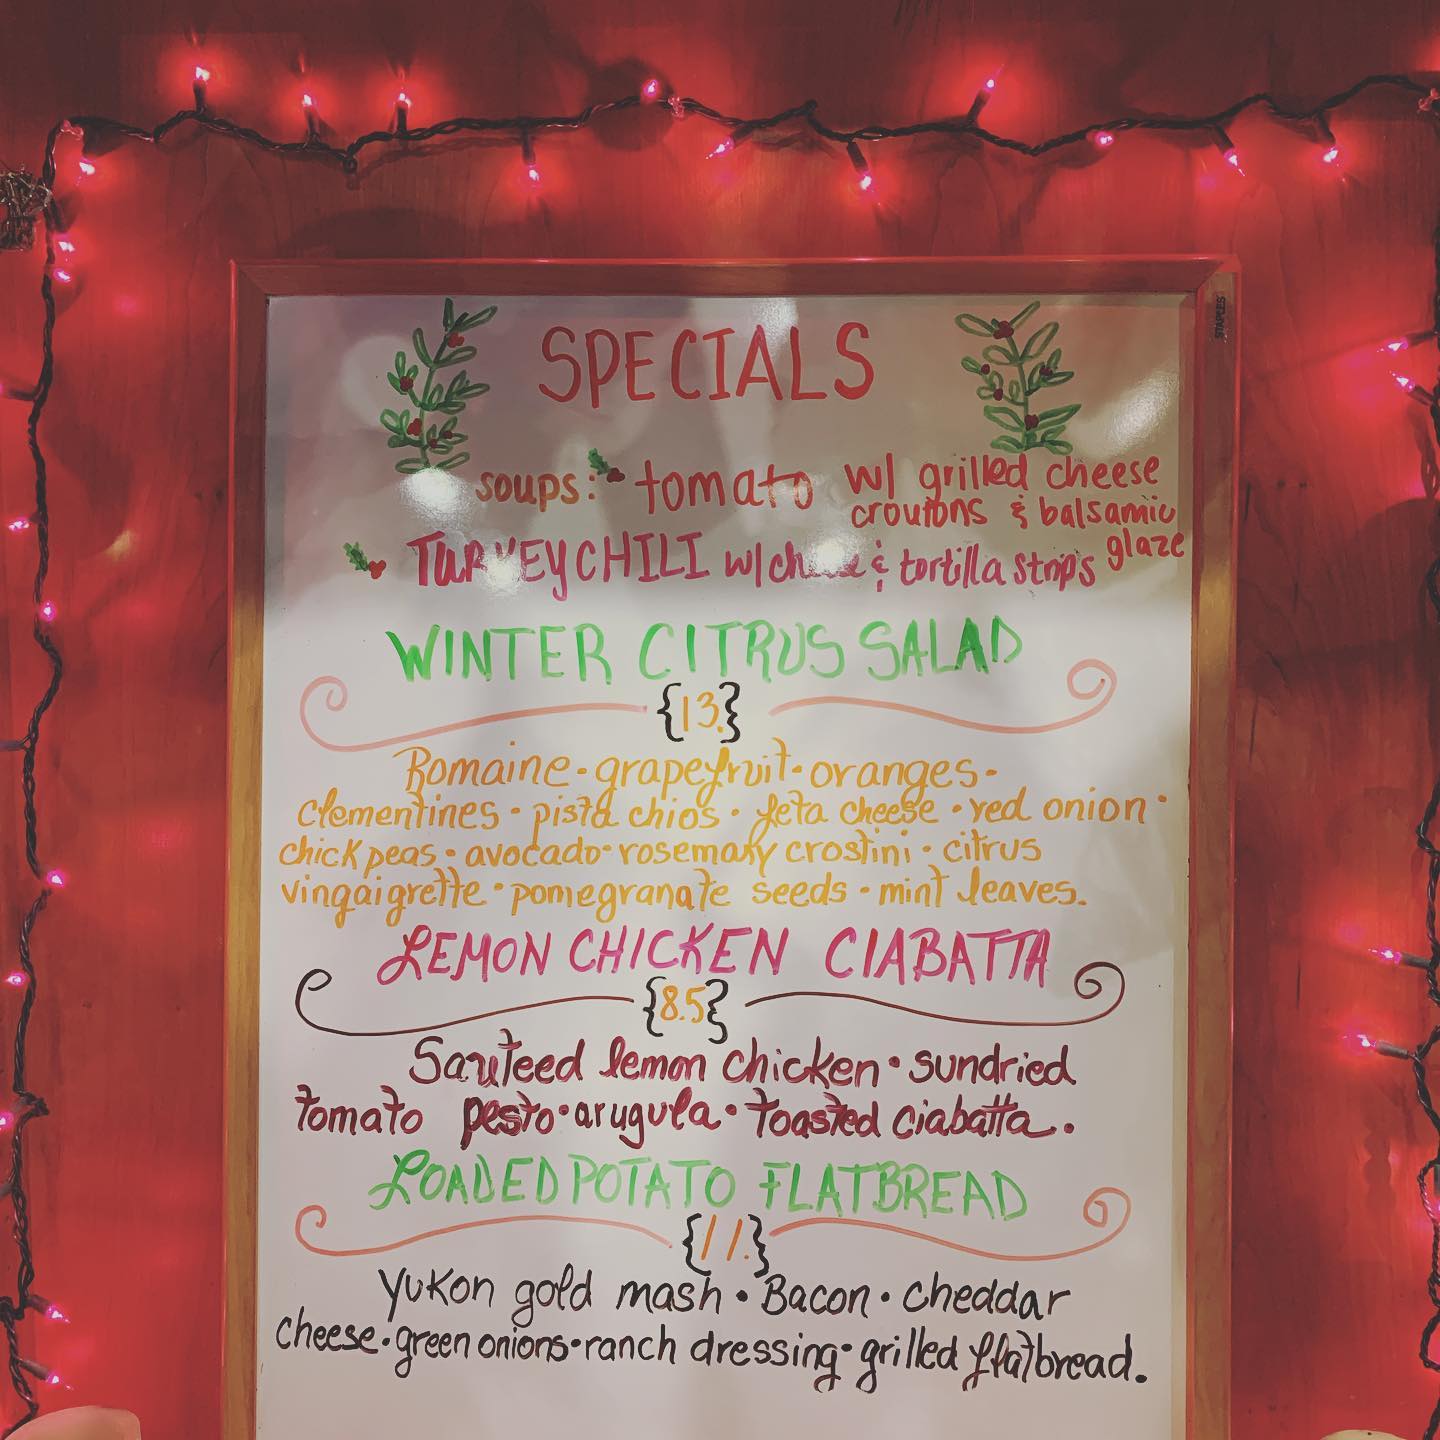 SPECIALS
soups: tomato w/ grilled cheese
croutons & balsamic
glaze
TURKEY CHILI w/ cheese & tortilla strips
WINTER CITRUS SALAD
{13.}
Romaine · grapefruit · oranges ·
clementines · pistachios · feta cheese · red onion ·
chick peas · avocado · rosemary crostini · citrus
vingaigrette · pomegranate seeds · mint leaves.
LEMON CHICKEN CIABATTA
{8.5}
Sauteed lemon chicken · sundried
tomato pesto · arugula · toasted ciabatta.
LOADED POTATO FLATBREAD
{11.}
Yukon gold mash · Bacon · cheddar
cheese · green onions · ranch dressing · grilled flatbread.
STAPLES